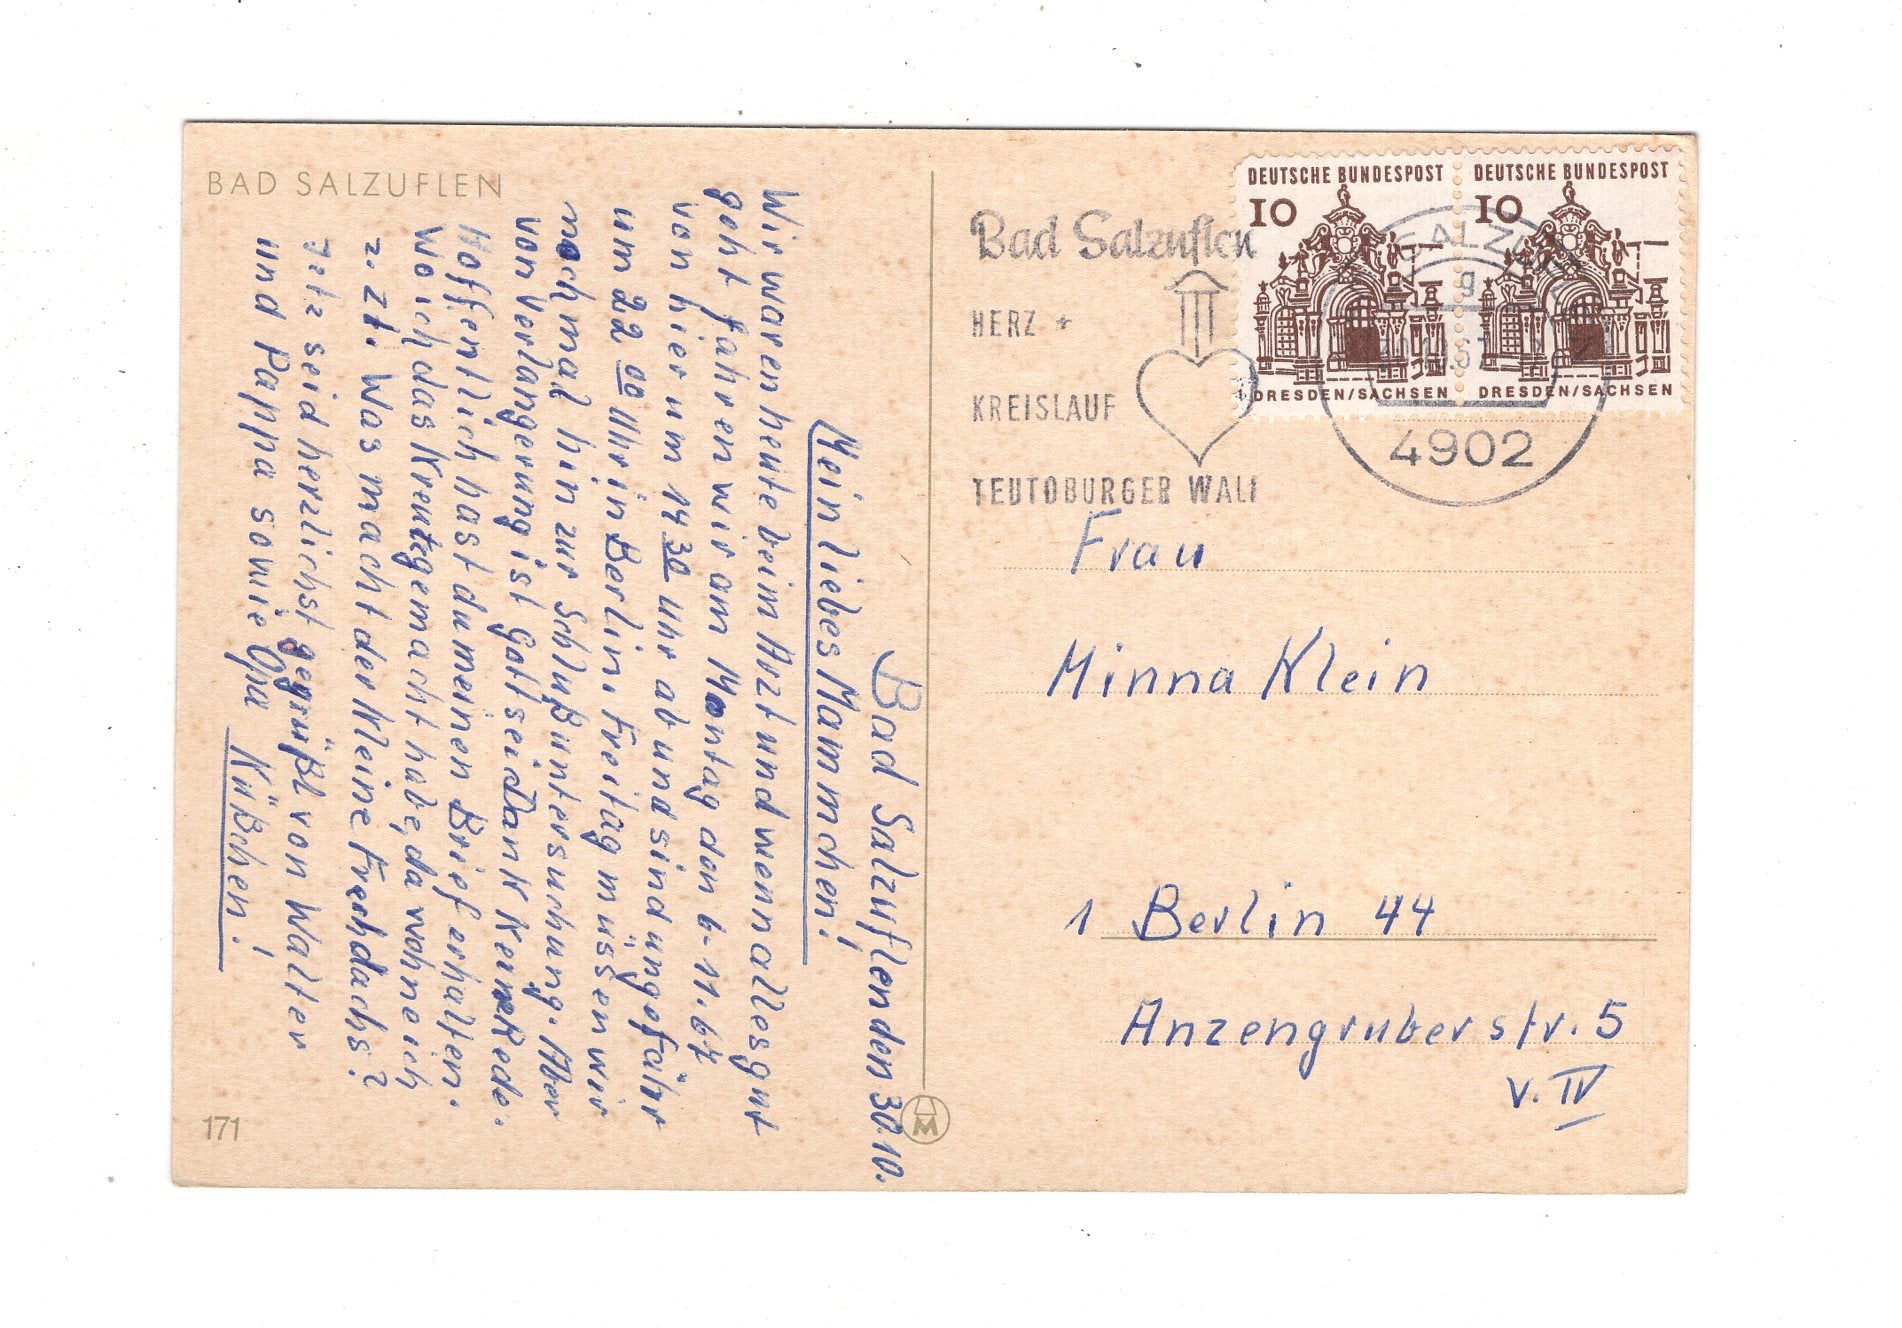 BAD SALZUFLEN
Bad Salzuflen den 30.10.
Mein liebes Mammchen!
Wir waren heute beim Arzt und wenn alles gut
geht fahren wir am Montag den 6-11.67
von hier um 14 30 uhr ab und sind ungefähr
um 22 00 Uhr in Berlin. Freitag müssen wir
noch mal hin zur Schlußuntersuchung. Aber
von Verlängerung ist Gott sei Dank keine Rede.
Hoffentlich hast du meinen Brief erhalten.
Wo ich das Kreutz gemacht habe, da wohne ich
z. Zt. Was macht der kleine Frechdachs?
Jetz seid herzlichst gegrüßt von Walter
und Pappa sowie Opa
Küßchen!
171
Bad Salzuflen
HERZ +
KREISLAUF
TEUTOBURGER WALD
DEUTSCHE BUNDESPOST
10
DRESDEN/SACHSEN
DEUTSCHE BUNDESPOST
10
DRESDEN/SACHSEN
4902
Frau
Minna Klein
1 Berlin 44
Anzengruberstr. 5
v. IV